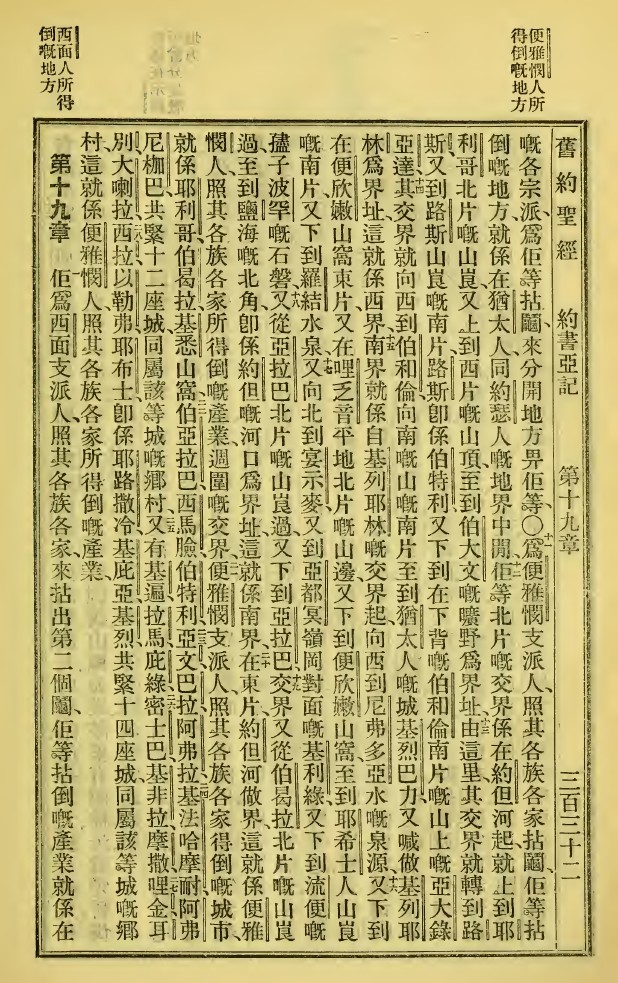 便雅憫人所
得倒嘅地方
西面人所得
倒嘅地方
舊約聖經 約書亞記 第十九章 三百三十二
嘅各宗派、爲佢等拈鬮、來分開地方畀佢等、〇十一爲便雅憫支派人、照其各族各家拈鬮、佢等拈
倒嘅地方、就係在猶太人、同約瑟人嘅地界中間、十二佢等北片嘅交界、係在約但河起、就上到耶
利哥北片嘅山崀、又上到西片嘅山頂、至到伯大文嘅曠野爲界址、十三由這里其交界就轉到路
斯、又到路斯山崀嘅南片、路斯卽係伯特利、又下到在下背嘅伯和倫南片嘅山上嘅亞大錄
亞達、十四其交界就向西到伯和倫向南嘅山嘅南片、至到猶太人嘅城基烈巴力、又喊做基列耶
林爲界址、這就係西界、十五南界就係自基列耶林嘅交界起、向西到尼弗多亞水嘅泉源、十六又下到
在便欣嫩山窩東片、又在哩乏音平地北片嘅山邊、又下到便欣嫩山窩、至到耶希士人山崀
嘅南片、又下到羅結水泉、十七又向北到宴示麥、又到亞都冥嶺岡對面嘅基利綠、又下到流便嘅
孻子波罕嘅石磐、十八又從亞拉巴北片嘅山崀過、又下到亞拉巴交界、十九又從伯曷拉北片嘅山崀
過、至到鹽海嘅北角、卽係約但嘅河口爲界址、這就係南界、二十在東片約但河做界、這就係便雅
憫人照其各族各家所得倒嘅產業、週圍嘅交界、二一便雅憫支派人、照其各族各家得倒嘅城市、
就係耶利哥、伯曷拉、基悉山窩、二二伯亞拉巴、西馬臉、伯特利、二三亞文、巴拉、阿弗拉、二四基法哈摩耐、阿弗
尼、枷巴、共緊十二座城、同屬該等城嘅鄉村、二五又有基遍、拉馬、庇綠、二六密士巴、基非拉、摩撒、二七哩金、耳
別、大喇拉、二八西拉、以勒弗、耶布士卽係耶路撒冷、基庇亞、基烈、共緊十四座城、同屬該等城嘅鄉
村、這就係便雅憫人、照其各族各家所得倒嘅產業、
第十九章 佢爲西面支派人、照其各族各家、來拈出第二個鬮、佢等拈倒嘅產業就係在